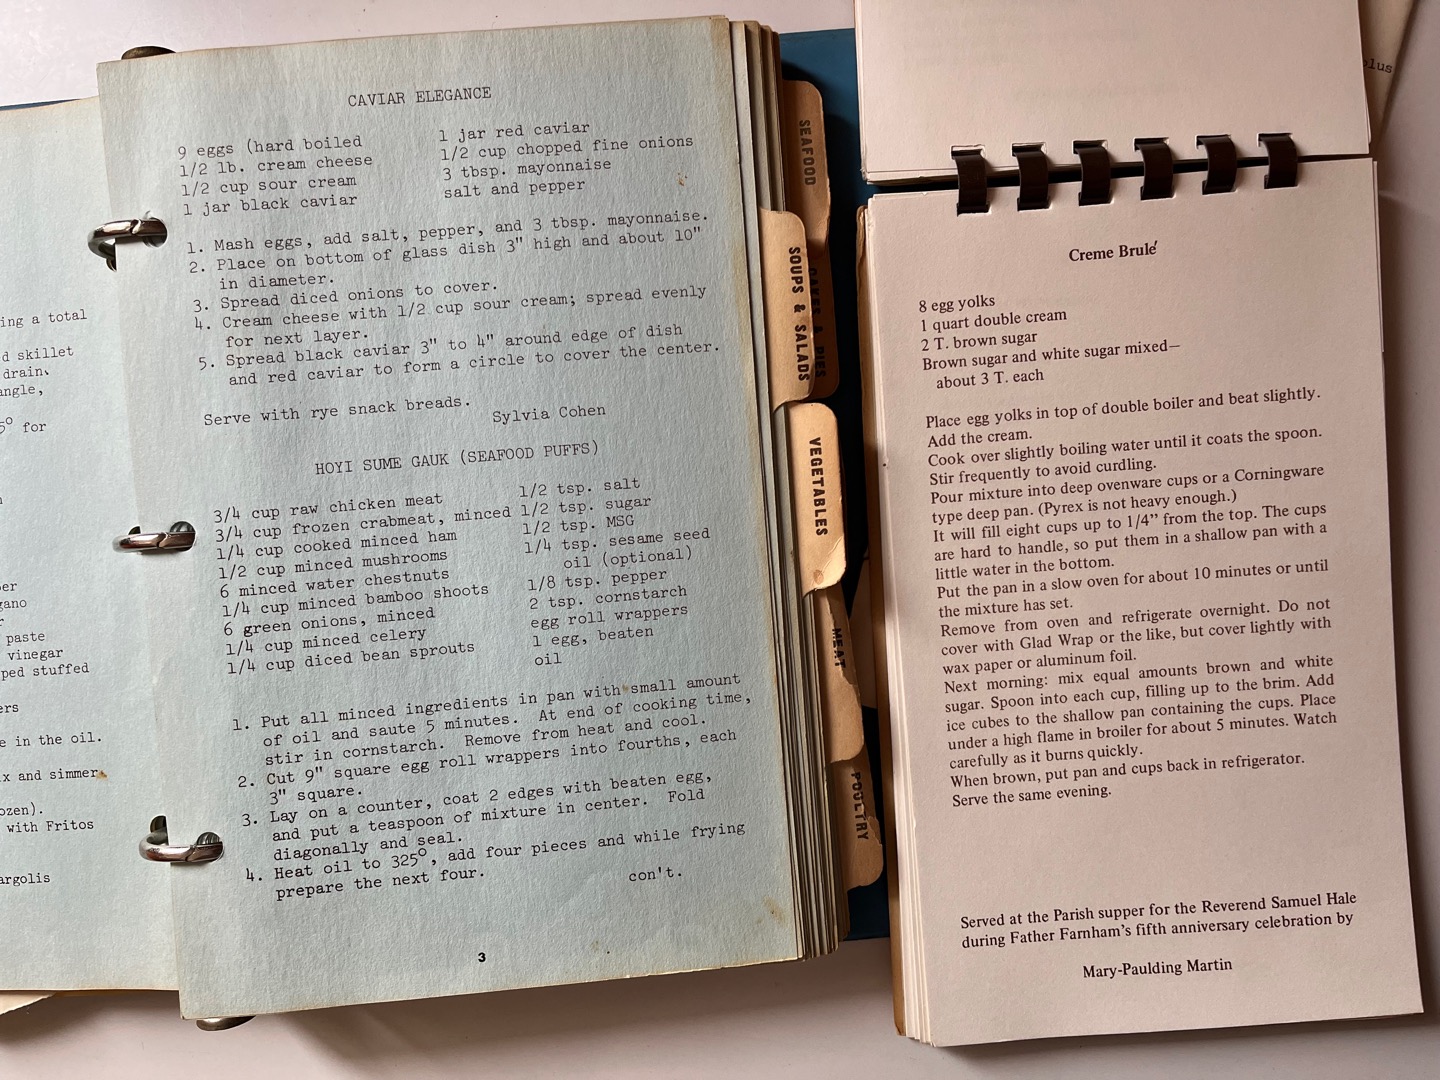 ing a total
d skillet
drain.
angle,
5° for
er
gano
r
paste
vinegar
ped stuffed
ers
e in the oil.
x and simmer
ozen).
with Fritos
argolis
CAVIAR ELEGANCE
9 eggs (hard boiled
1/2 lb. cream cheese
1/2 cup sour cream
1 jar black caviar
1 jar red caviar
1/2 cup chopped fine onions
3 tbsp. mayonnaise
salt and pepper
1. Mash eggs, add salt, pepper, and 3 tbsp. mayonnaise.
2. Place on bottom of glass dish 3" high and about 10"
in diameter.
3. Spread diced onions to cover.
4. Cream cheese with 1/2 cup sour cream; spread evenly
for next layer.
5. Spread black caviar 3" to 4" around edge of dish
and red caviar to form a circle to cover the center.
Serve with rye snack breads.
Sylvia Cohen
HOYI SUME GAUK (SEAFOOD PUFFS)
3/4 cup raw chicken meat
3/4 cup frozen crabmeat, minced
1/4 cup cooked minced ham
1/2 cup minced mushrooms
6 minced water chestnuts
1/4 cup minced bamboo shoots
6 green onions, minced
1/4 cup minced celery
1/4 cup diced bean sprouts
1/2 tsp. salt
1/2 tsp. sugar
1/2 tsp. MSG
1/4 tsp. sesame seed
oil (optional)
1/8 tsp. pepper
2 tsp. cornstarch
egg roll wrappers
1 egg, beaten
oil
1. Put all minced ingredients in pan with small amount
of oil and saute 5 minutes. At end of cooking time,
stir in cornstarch. Remove from heat and cool.
2. Cut 9" square egg roll wrappers into fourths, each
3" square.
3. Lay on a counter, coat 2 edges with beaten egg,
and put a teaspoon of mixture in center. Fold
diagonally and seal.
4. Heat oil to 325°, add four pieces and while frying
prepare the next four.
con't.
3
SEAFOOD
CAKES & PIES
SOUPS & SALADS
VEGETABLES
MEAT
POULTRY
plus
Creme Brulé
8 egg yolks
1 quart double cream
2 T. brown sugar
Brown sugar and white sugar mixed—
about 3 T. each
Place egg yolks in top of double boiler and beat slightly.
Add the cream.
Cook over slightly boiling water until it coats the spoon.
Stir frequently to avoid curdling.
Pour mixture into deep ovenware cups or a Corningware
type deep pan. (Pyrex is not heavy enough.)
It will fill eight cups up to 1/4" from the top. The cups
are hard to handle, so put them in a shallow pan with a
little water in the bottom.
Put the pan in a slow oven for about 10 minutes or until
the mixture has set.
Remove from oven and refrigerate overnight. Do not
cover with Glad Wrap or the like, but cover lightly with
wax paper or aluminum foil.
Next morning: mix equal amounts brown and white
sugar. Spoon into each cup, filling up to the brim. Add
ice cubes to the shallow pan containing the cups. Place
under a high flame in broiler for about 5 minutes. Watch
carefully as it burns quickly.
When brown, put pan and cups back in refrigerator.
Serve the same evening.
Served at the Parish supper for the Reverend Samuel Hale
during Father Farnham's fifth anniversary celebration by
Mary-Paulding Martin